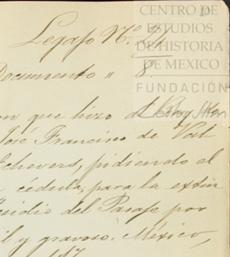 CENTRO DE
ESTUDIOS
DE HISTORIA
DE MEXICO
FUNDACIÓN
Legajo N.o
Documento " 8
on que hizo el
José Francisco de
Echevers, pidiendo el
cédula, para la extin
sidio del Pasage por
il y gravoso. México,